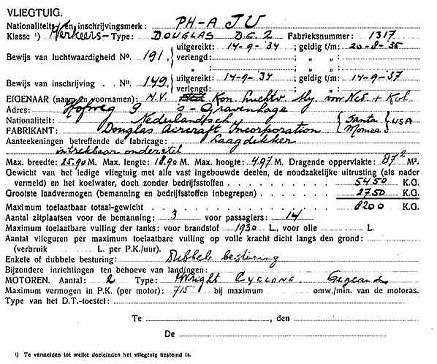 VLIEGTUIG.
Nationaliteits- en inschrijvingsmerk: PH-AJU
Klasse ¹) Verkeers- Type: DOUGLAS D.C. 2 Fabrieksnummer: 1317
Bewijs van luchtwaardigheid No 191. uitgereikt: 14-9-'34 ; geldig t/m: 20-8-'35
verlengd: : „ „ :
Bewijs van inschrijving No 149. uitgereikt: 14-9-'34 ; geldig t/m: 14-9-'37
verlengd: : „ „ :
EIGENAAR (naam en voornamen): N.V. Kon. Luchtv. Mij voor Ned. + Kol.
Adres: Hofweg 9 's-Gravenhage
Nationaliteit: Nederlandsch
FABRIKANT: Douglas Aircraft Incorporation (Santa Monica) USA
Aanteekeningen betreffende de fabrikant: Laagdekker
intrekbaar onderstel
Max. breedte: 25.90 M. Max. lengte: 18.90 M. Max. hoogte: 4.97 M. Dragende oppervlakte: 87² M².
Gewicht van het ledige vliegtuig met alle vast ingebouwde deelen, de noodzakelijke uitrusting (als nader
vermeld) en het koelwater, doch zonder bedrijfsstoffen: 5450 K.G.
Grootste laadvermogen (bemanning en bedrijfsstoffen inbegrepen) 2750 K.G.
Maximum toelaatbaar totaal-gewicht 8200 K.G.
Aantal zitplaatsen voor de bemanning: 3 voor passagiers: 14
Maximum toelaatbare vulling der tanks: voor brandstof 1930 L., voor olie L.
Aantal vlieguren per maximum toelaatbare vulling op volle kracht dicht langs den grond:
(verbruik L. per P.K./uur).
Enkele of dubbele besturing: Dubbele besturing
Bijzondere inrichtingen ten behoeve van landingen:
MOTOREN. Aantal: 2 Type: Wright Cyclone Geared
Maximum vermogen in P.K. (per motor): 715 bij maximum omw./min. van de motoren.
Type van het D.T.-toestel:
Te , den
De
¹) Te vermelden tot welke doeleinden het vliegtuig bestemd is.